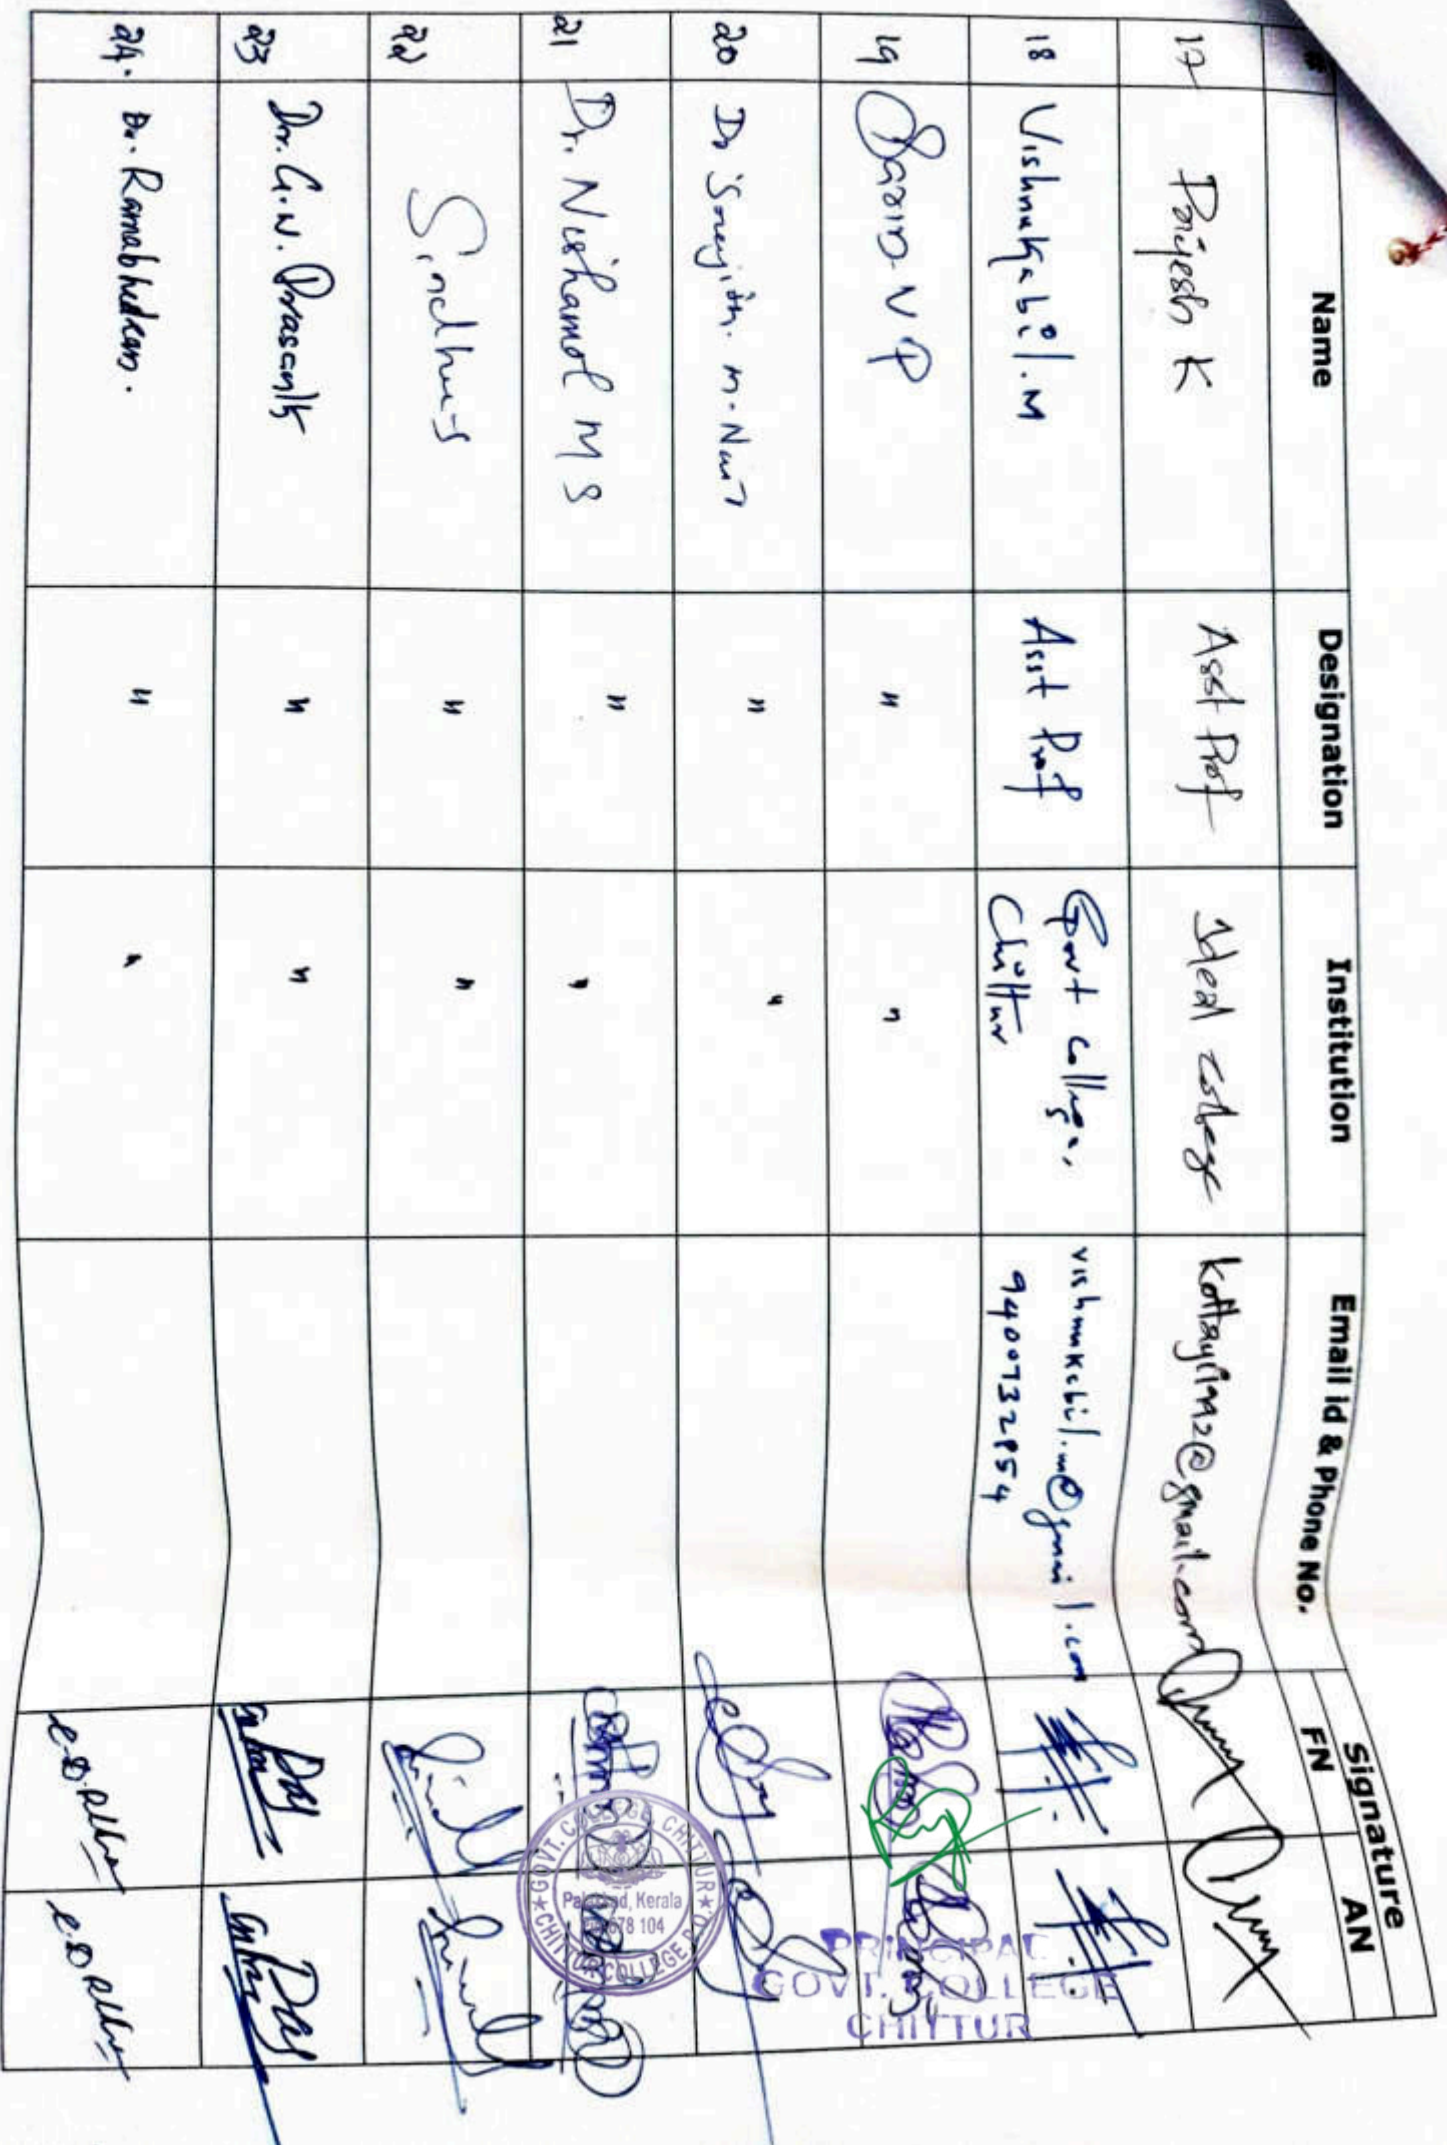 # Name Designation Institution Email id & Phone No. Signature
FN AN
17 Prijesh K Asst Prof Ideal College @gmail.com
18 Vishnukabil.M Asst Prof Govt College,
Chittur vishnukabil.m@gmail.com
9400732854
19 Sarin V P " "
20 Dr M. Nair " "
21 Dr. Nishamol M S " "
22 Sindhu S " "
23 Dr. G.N. Prasanth " "
24. Dr. Ramabhadran. " "
GOVT. COLLEGE CHITTUR
Palakkad, Kerala
678 104
CHITTUR COLLEGE P.O
PRINCIPAL
GOVT. COLLEGE
CHITTUR